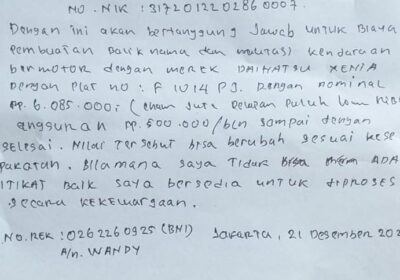 NO. NIK : 3172012202860007.
Dengan ini akan bertanggung Jawab untuk Biaya
Pembuatan Balik nama dan mutasi kendaraan
bermotor dengan merek DAIHATSU XENIA
Dengan Plat no : F 1014 PJ. Dengan nominal
Rp. 6.085.000,- (enam Juta Delapan Puluh Lima Ribu
angsuran Rp. 500.000/bln sampai dengan
selesai. Nilai tersebut bisa berubah sesuai kese
pakatan. Bilamana saya Tidak ADA
ITIKAT Baik saya bersedia untuk diproses
secara kekeluargaan.
NO. REK : 0262260925 (BNI) Jakarta, 21 Desember 202
A/n. WANDY